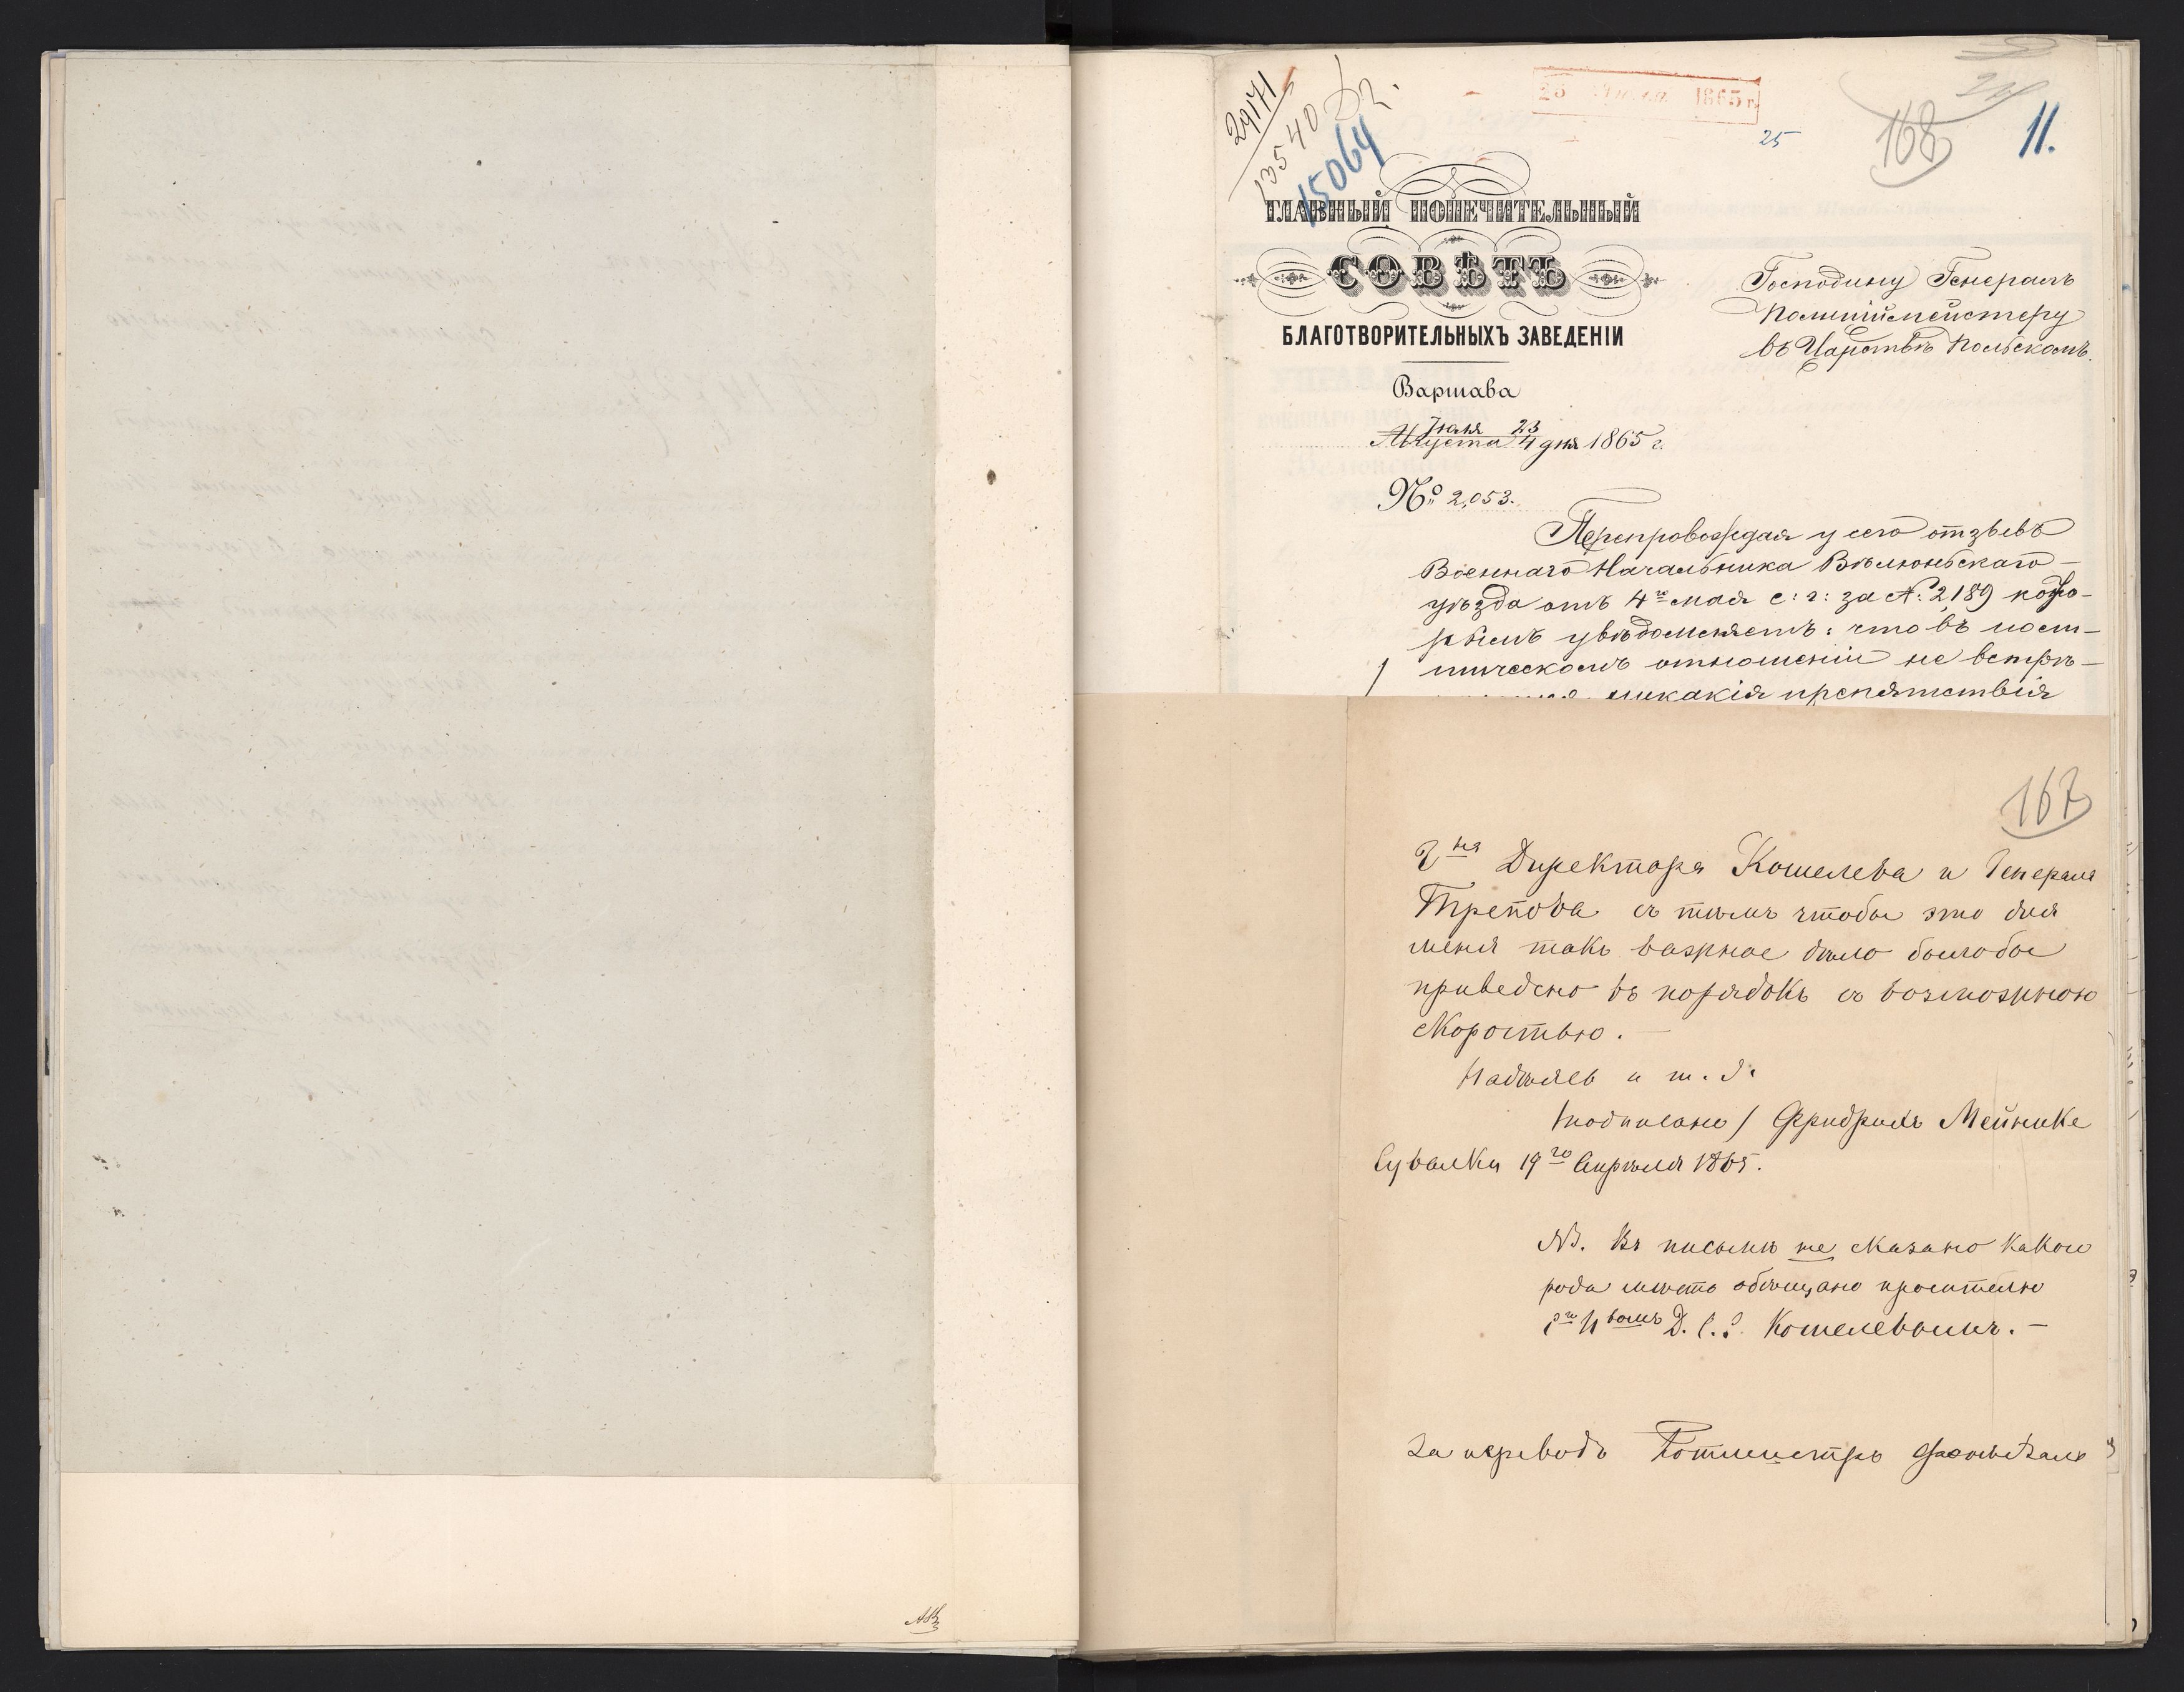 29171
13540
15064
25 1865 г.
25
168
11.
ГЛАВНЫЙ ПОПЕЧИТЕЛЬНЫЙ
СОВѢТЪ
БЛАГОТВОРИТЕЛЬНЫХЪ ЗАВЕДЕНІИ
Варшава
Іюля 23
Августа 4 дня 1865 г.
№ 2,053.
Господину Генералъ
Полиціймейстеру
въ Царствѣ Польскомъ.
Препровождая у сего отзывъ
Военнаго Начальника Вѣлюньскаго
уѣзда отъ 4го мая с: г: за №: 2,189 кото-
рымъ увѣдомляетъ: что въ поли-
тическомъ отношеніи не встрѣ-
никакія препятствія
167
Гна Директора Кошелева и Генерала
Трепова съ тѣмъ чтобы это для
меня такъ важное дѣло было бы
приведено въ порядокъ съ возможною
скоростью. —
Надѣясь и т. д.
/подписано/ Фридрихъ Мейнике
Сувалки 19го Апрѣля 1865.
NB. Въ письмѣ не сказано какого
рода мѣсто обѣщано просителю
Д. С. С. Кошелевымъ. —
За переводъ Ротмистръ